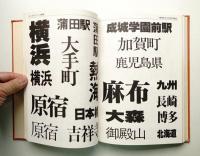 横浜
横浜
原宿
原宿
蒲田駅
蒲田駅
大手町
熱海
日本
吉祥
成城学園前駅
加賀町
鹿児島県
麻布
大森
御殿山
九州
長崎
博多
北海道